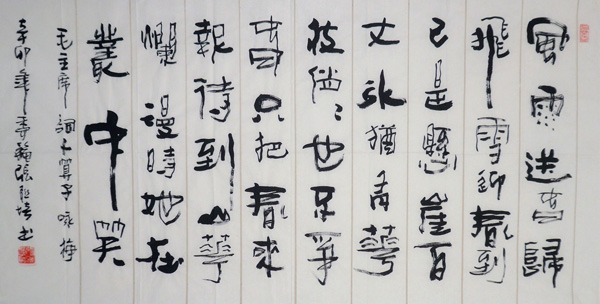 風雨送春歸
飛雪迎春到
已是懸崖百
丈冰猶有華
枝俏〻也不爭
春只把春來
報待到山華
爛漫時她在
叢中笑
毛主席詞卜算子咏梅
辛卯年 張 书